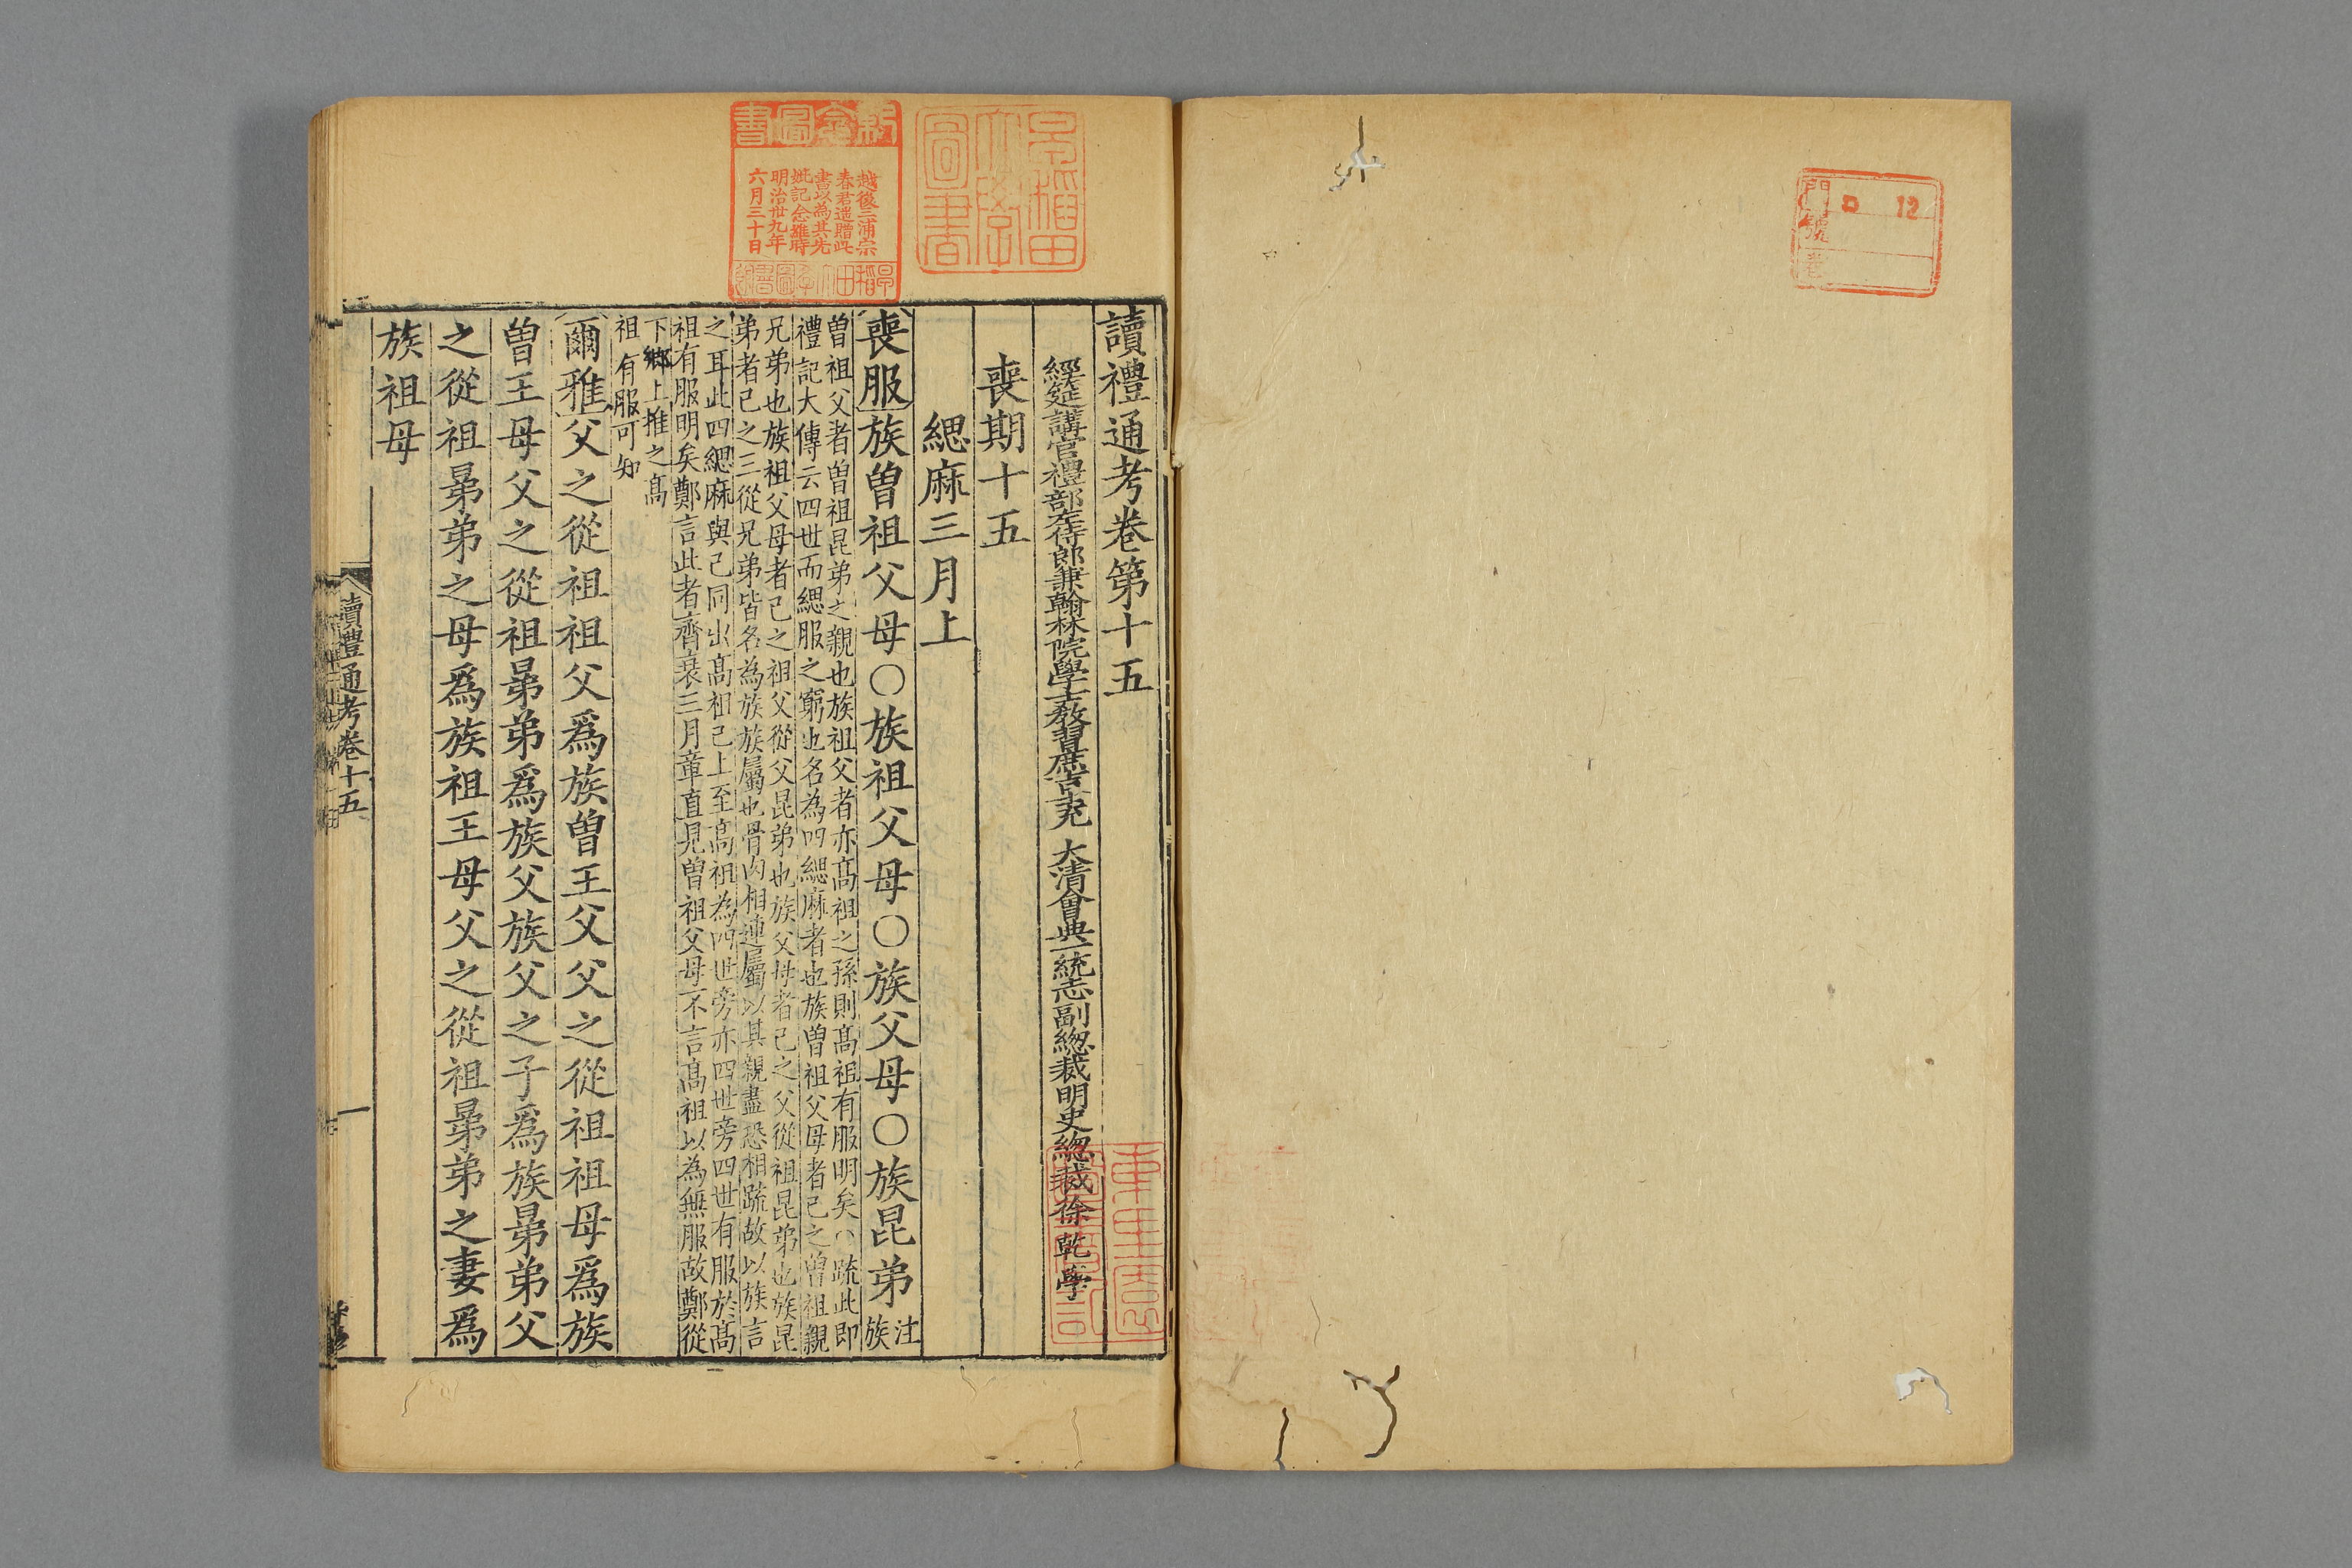 門 ロ 12
號
卷
讀禮通考卷第十五
經筵講官禮部左侍郎兼翰林院學士敎習庶吉士充 大清會典一統志副總裁明史總裁徐 乾 學
喪期十五
緦麻三月上
喪服族曽祖父母○族祖父母○族父母○族昆弟注族
曽祖父者曽祖昆弟之親也族祖父者亦髙祖之孫則髙祖有服明矣○疏此即
禮記大傳云四世而緦服之窮也名為四緦麻者也族曽祖父母者己之曽祖親
兄弟也族祖父母者己之祖父從父昆弟也族父母者己之父從祖昆弟也族昆
弟者己之三從兄弟皆名為族族屬也骨肉相連屬以其親盡恐相疏故以族言
之耳此四緦麻與己同出髙祖己上至髙祖為四世旁亦四世旁四世有服於髙
祖有服明矣鄭言此者齊衰三月章直見曽祖父母不言髙祖以為無服故鄭從
下鄉上推之髙
祖有服可知
爾雅父之從祖祖父爲族曽王父父之從祖祖母爲族
曽王母父之從祖晜弟爲族父族父之子爲族晜弟父
之從祖晜弟之母爲族祖王母父之從祖晜弟之妻爲
族祖母
讀禮通考卷十五
一
圖書
越後三浦宗
春君遺贈此
書以為其先
妣記念雖時
明治卅九年
六月三十日